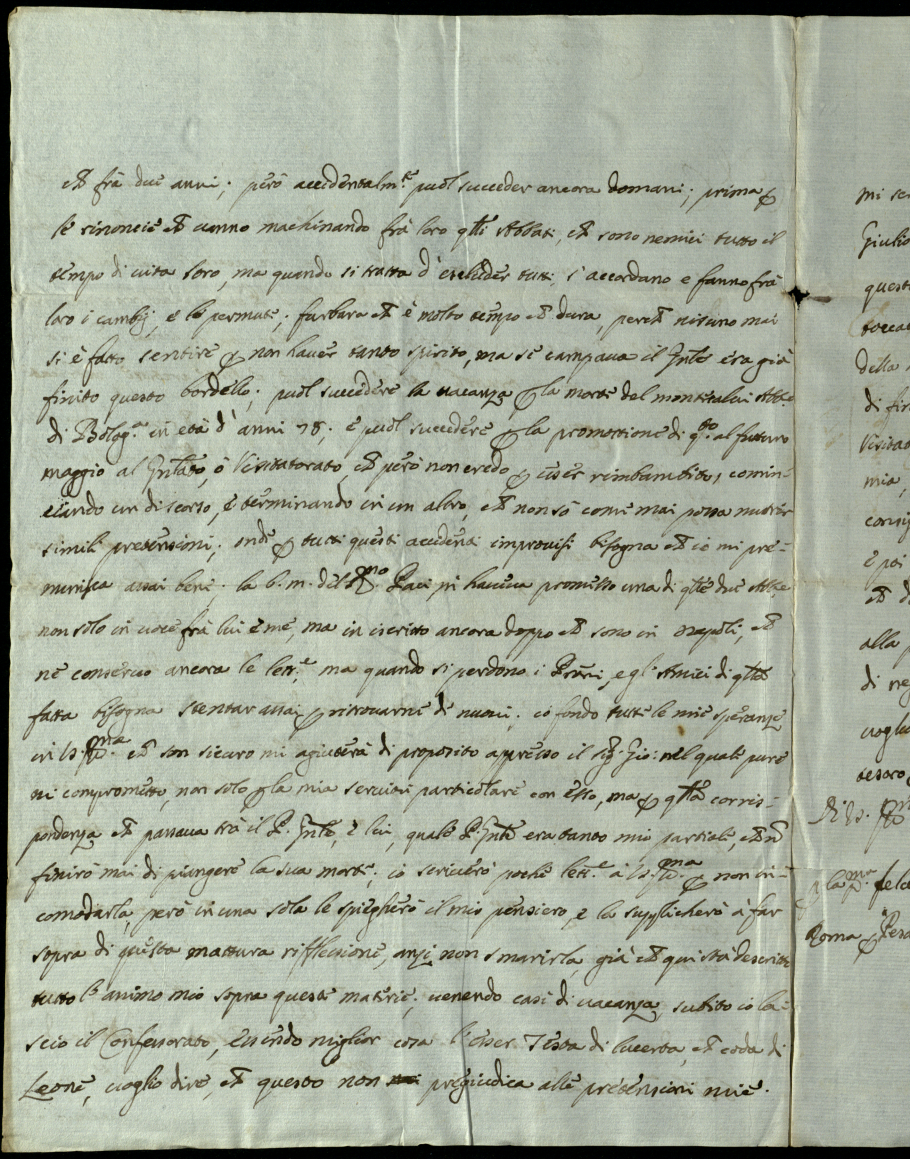 che frà due anni; però accidentalm.te puol succeder ancora domani; prima
le rinoncie che vanno machinando frà loro q.ti Abbati, che sono nemici tutto il
tempo di vita loro, ma quando si tratta d'escluder tutti, s'accordano e fanno frà
loro i cambij, e le permute; furbara che è molto tempo che dura, perche nisuno mai
si è fatto sentire non haver tanto spirito, ma se campava il era già
finito questo bordello; puol succedere la vacanza la morte del Abb.e
di Bolog.a in età d'anni 78; e puol succedere la promottione di q.to al futuro
maggio al ò Visitatorato, che però non credo esser rimbambito, comin=
ciando un discorso, e terminando in un altro, che non sò come mai possa nudrir
simili pretensioni; onde tutti questi accidenti improvisi bisogna che io mi pre=
munisca assai bene. la b. m. del Paci haveva promesso una di q.te due Abb.e
non solo in voce frà lui è me, ma in iscritto ancora doppo che sono in Napoli, che
ne conservo ancora le lett.e ma quando si perdono i e gl'Amici di q.ta
fatta bisogna stentar assai ritrovarne de nuovi. io fondo tutte le mie speranze
in V. che son sicuro mi agiuterà di proposito appresso il Sig. Gio: nel quale pure
mi comprometto, non solo la mia servitù particolare con esso, ma q.ta corris=
pondenza che passava trà il P. e lui, quale P. era tanto mio parziale, che
finirò mai di piangere la sua morte; io scriverò poche lett.e à V. non in=
comodarla, però in una sola le spiegherò il mio pensiero, e la supplicherò à far
sopra di questa mattura riflessione, anzi non smarirla, già che qui stà descritto
tutto l'animo mio sopra queste materie; venendo casi di vacanza, subito io la=
scio il Confessorato, essendo miglior cosa l'esser Testa di lucerta, che coda di
Leone, voglio dire, che questo non pregiudica alle pretensioni mie.
mi
Giulio
della
di
mia,
e poi
alla
di
tesoro
Roma